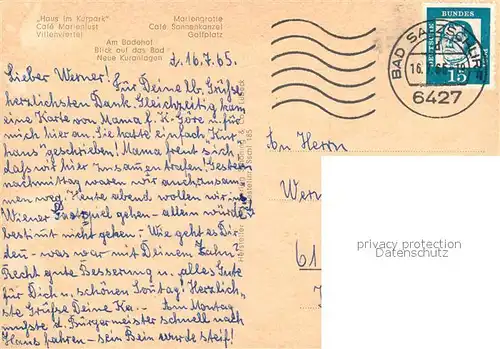 „Haus im Kurpark"
Café Marienlust
Villenviertel
Mariengrotte
Café Sonnenkanzel
Golfplatz
Am Badehof
Blick auf das Bad
Neue Kuranlagen
d. 16.7.65.
Lieber Werner! Für Deine lb. Grüße
herzlichsten Dank. Gleichzeitig kam
eine Karte von Mama f. K. Göre u. für
mich hier an. Sie hatte einfach „Kur-
haus" geschrieben! Mama freut sich,
daß wir hier zusammen trafen! Gestern
nachmittag waren wir auch zusam-
men weg. Heute abend wollen wir in
Wiener Gastspiel gehen - allein würde
bestimmt nicht gehen. - Wie geht es Dir
denn - was war mit Deinem Zahn?
Recht gute Besserung u. alles Gute
für Dich u. schönen Sonntag! Herzlich-
ste Grüße Deine Ka... Am Montag
mußte d. Bürgermeister schnell nach
Haus fahren - sein Bein wurde steif!
Hersteller
DEUTSCHE BUNDESPOST
15
BAD SALZSCHLIRF
16.7.65
6427
An Herrn
Wer
61
privacy protection
Datenschutz